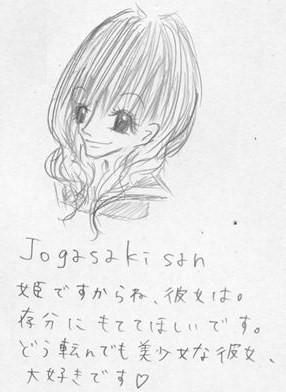 Jogasaki san
姫ですからね、彼女は。
存分にもててほしいです。
どう転んでも美少女な彼女、
大好きです♡